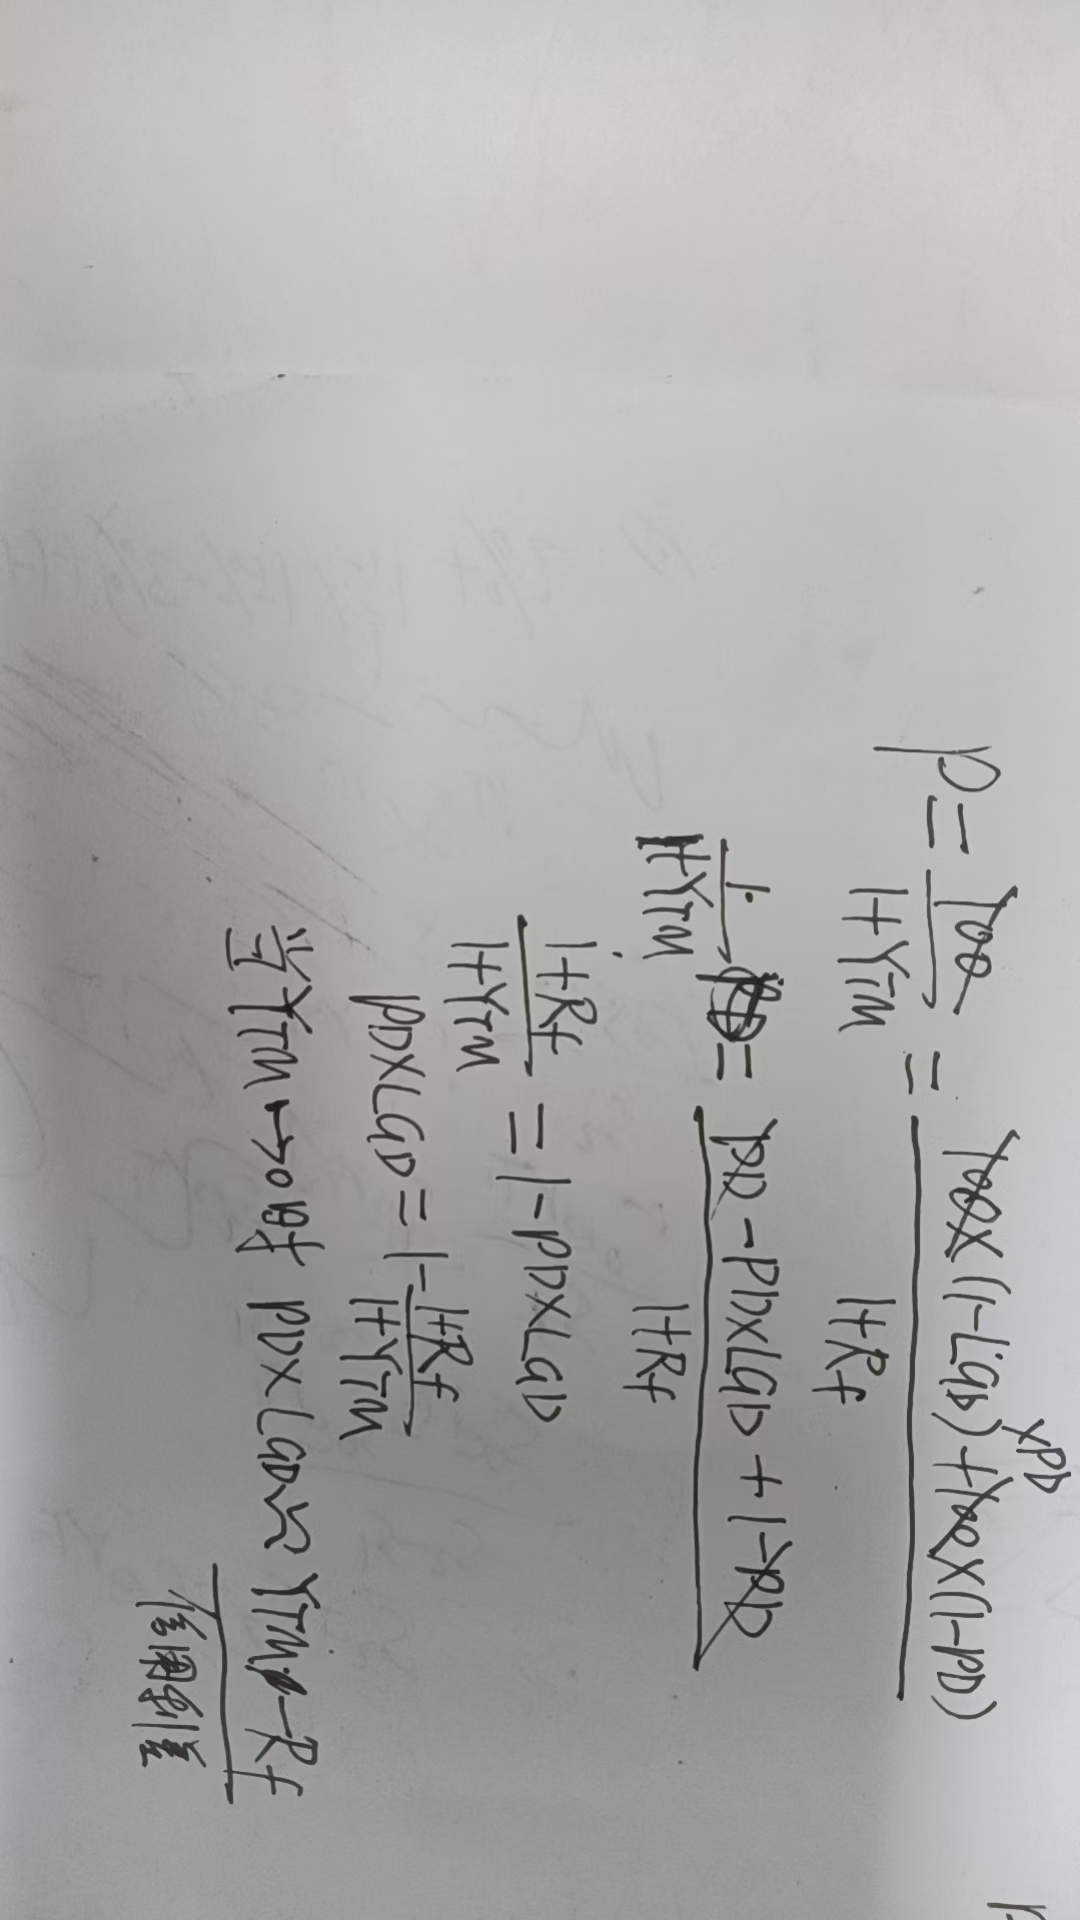 P = 100 / 1+YTM = 100×(1-LGD)×PD+100×(1-PD) / 1+Rf
1 / 1+YTM = PD-PD×LGD+1-PD / 1+Rf
1+Rf / 1+YTM = 1-PD×LGD
PD×LGD = 1-1+Rf / 1+YTM
当YTM→0时 PD×LGD≈YTM-Rf
信用利差